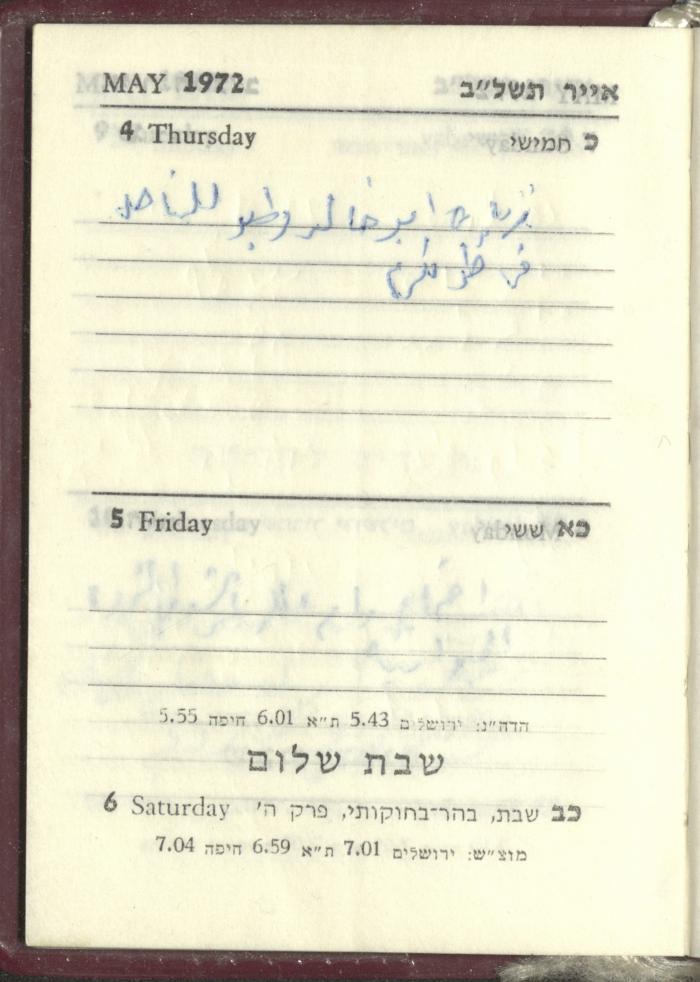 MAY 1972 אייר תשל״ב
4 Thursday כ חמישי
ابو خالد
في طولكرم
5 Friday כא ששי
הדה״נ: ירושלים 5.43 ת״א 6.01 חיפה 5.55
שבת שלום
6 Saturday כב שבת, בהר־בחוקותי, פרק ה׳
מוצ״ש: ירושלים 7.01 ת״א 6.59 חיפה 7.04